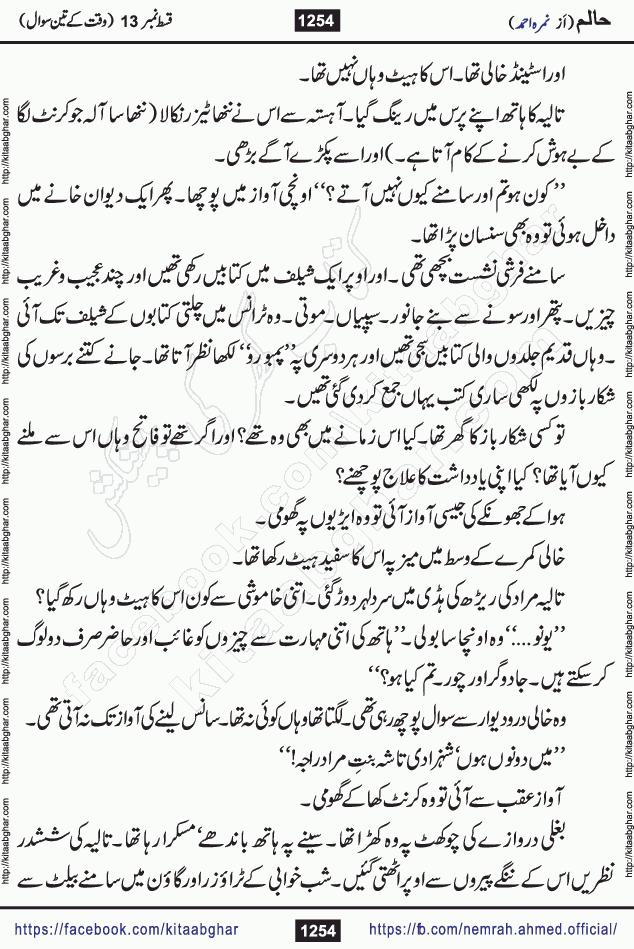 حالم (از نمرہ احمد) 1254 قسط نمبر 13 (وقت کے تین سوال)
اور اسٹینڈ خالی تھا۔ اس کا ہیٹ وہاں نہیں تھا۔
تالیہ کا ہاتھ اپنے پرس میں رینگ گیا۔ آہستہ سے اس نے ننھا ٹیزر نکالا (ننھا سا آلہ جو کرنٹ لگا
کے بے ہوش کرنے کے کام آتا ہے۔) اور اسے پکڑے آگے بڑھی۔
’’کون ہو تم اور سامنے کیوں نہیں آتے؟‘‘ اونچی آواز میں پوچھا۔ پھر ایک دیوان خانے میں
داخل ہوئی تو وہ بھی سنسان پڑا تھا۔
سامنے فرشی نشست بچھی تھی۔ اور اوپر ایک شیلف میں کتابیں رکھی تھیں اور چند عجیب و غریب
چیزیں۔ پتھر اور سونے سے بنے جانور۔ سیپیاں۔ موتی۔ وہ ٹرانس میں چلتی کتابوں کے شیلف تک آئی
۔ وہاں قدیم جلدوں والی کتابیں سجی تھیں اور ہر دوسری پہ ’’پمبورو‘‘ لکھا نظر آتا تھا۔ جانے کتنے برسوں کی
شکار بازوں پہ لکھی ساری کتب یہاں جمع کر دی گئی تھیں۔
تو کسی شکار باز کا گھر تھا۔ کیا اس زمانے میں بھی وہ تھے؟ اور اگر تھے تو فاتح وہاں اس سے ملنے
کیوں آیا تھا؟ کیا اپنی یادداشت کا علاج پوچھنے؟
ہوا کے جھونکے کی جیسی آواز آئی تو وہ ایڑیوں پہ گھومی۔
خالی کمرے کے وسط میں میز پہ اس کا سفید ہیٹ رکھا تھا۔
تالیہ مراد کی ریڑھ کی ہڈی میں سرد لہر دوڑ گئی۔ اتنی خاموشی سے کون اس کا ہیٹ وہاں رکھ گیا؟
’’یو نو....‘‘ وہ اونچا سا بولی۔ ’’ہاتھ کی اتنی مہارت سے چیزوں کو غائب اور حاضر صرف دو لوگ
کر سکتے ہیں۔ جادوگر اور چور۔ تم کیا ہو؟‘‘
وہ خالی در و دیوار سے سوال پوچھ رہی تھی۔ لگتا تھا وہاں کوئی نہ تھا۔ سانس لینے کی آواز تک نہ آتی تھی۔
’’میں دونوں ہوں‘ شہزادی تاشہ بنتِ مراد راجہ!‘‘
آواز عقب سے آئی تو وہ کرنٹ کھا کے گھومی۔
بغلی دروازے کی چوکھٹ پہ وہ کھڑا تھا۔ سینے پہ ہاتھ باندھے‘ مسکرا رہا تھا۔ تالیہ کی ششدر
نظریں اس کے ننگے پیروں سے اوپر اٹھتی گئیں۔ شب خوابی کے ٹراؤزر اور گاؤن میں سامنے بیلٹ سے
https://facebook.com/kitaabghar 1254 https://fb.com/nemrah.ahmed.official/
http://kitaabghar.com http://kitaabghar.com http://kitaabghar.com http://kitaabghar.com http://kitaabghar.com http://kitaabghar.com http://kitaabghar.com http://kitaabghar.com
http://kitaabghar.com http://kitaabghar.com http://kitaabghar.com http://kitaabghar.com http://kitaabghar.com http://kitaabghar.com http://kitaabghar.com http://kitaabghar.com
کتاب گھر کی پیشکش
facebook.com/kitaabghar
kitaabghar.com